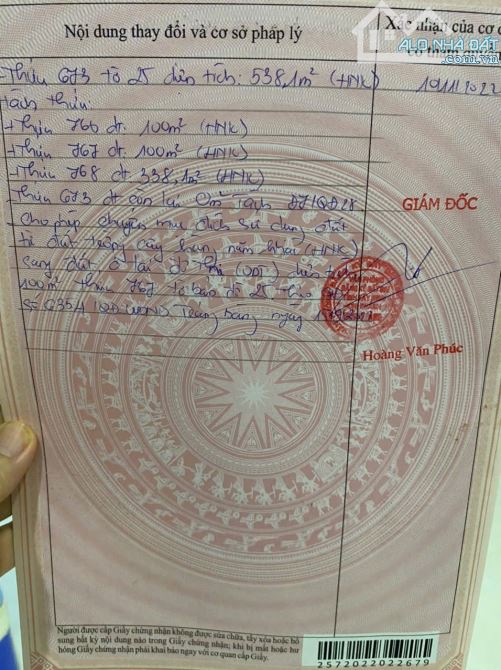 Nội dung thay đổi và cơ sở pháp lý
Xác nhận của cơ
có thẩm quyền
ALO NHÀ ĐẤT
.com.vn
- Thửa 673 tờ 25 diện tích: 538,1m² (HNK)
19/11/2022
tách thửa:
+ Thửa 766 dt. 100m² (HNK)
+ Thửa 767 dt 100m² (HNK)
+ Thửa 768 dt 338,1m² (HNK)
Thửa 673 dt còn lại 0m²
GIÁM ĐỐC
Cho phép chuyển mục đích sử dụng đất
từ đất trồng cây hàng năm khác (HNK)
sang đất ở tại đô thị (ODT) diện tích
100m² thửa 767 tờ bản đồ 25 theo
Trảng Bàng ngày
Hoàng Văn Phúc
Người được cấp Giấy chứng nhận không được sửa chữa, tẩy xóa hoặc bổ
sung bất kỳ nội dung nào trong Giấy chứng nhận; khi bị mất hoặc hư
hỏng Giấy chứng nhận phải khai báo ngay với cơ quan cấp Giấy.
2572022022679